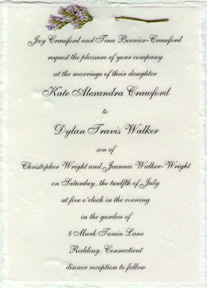 Jay Crawford and Tina Bernier-Crawford
request the pleasure of your company
at the marriage of their daughter
Kate Alexandra Crawford
to
Dylan Travis Walker
son of
Christopher Wright and Jeannie Walker-Wright
on Saturday, the twelfth of July
at five o'clock in the evening
in the garden of
8 Mark Twain Lane
Redding, Connecticut
dinner reception to follow